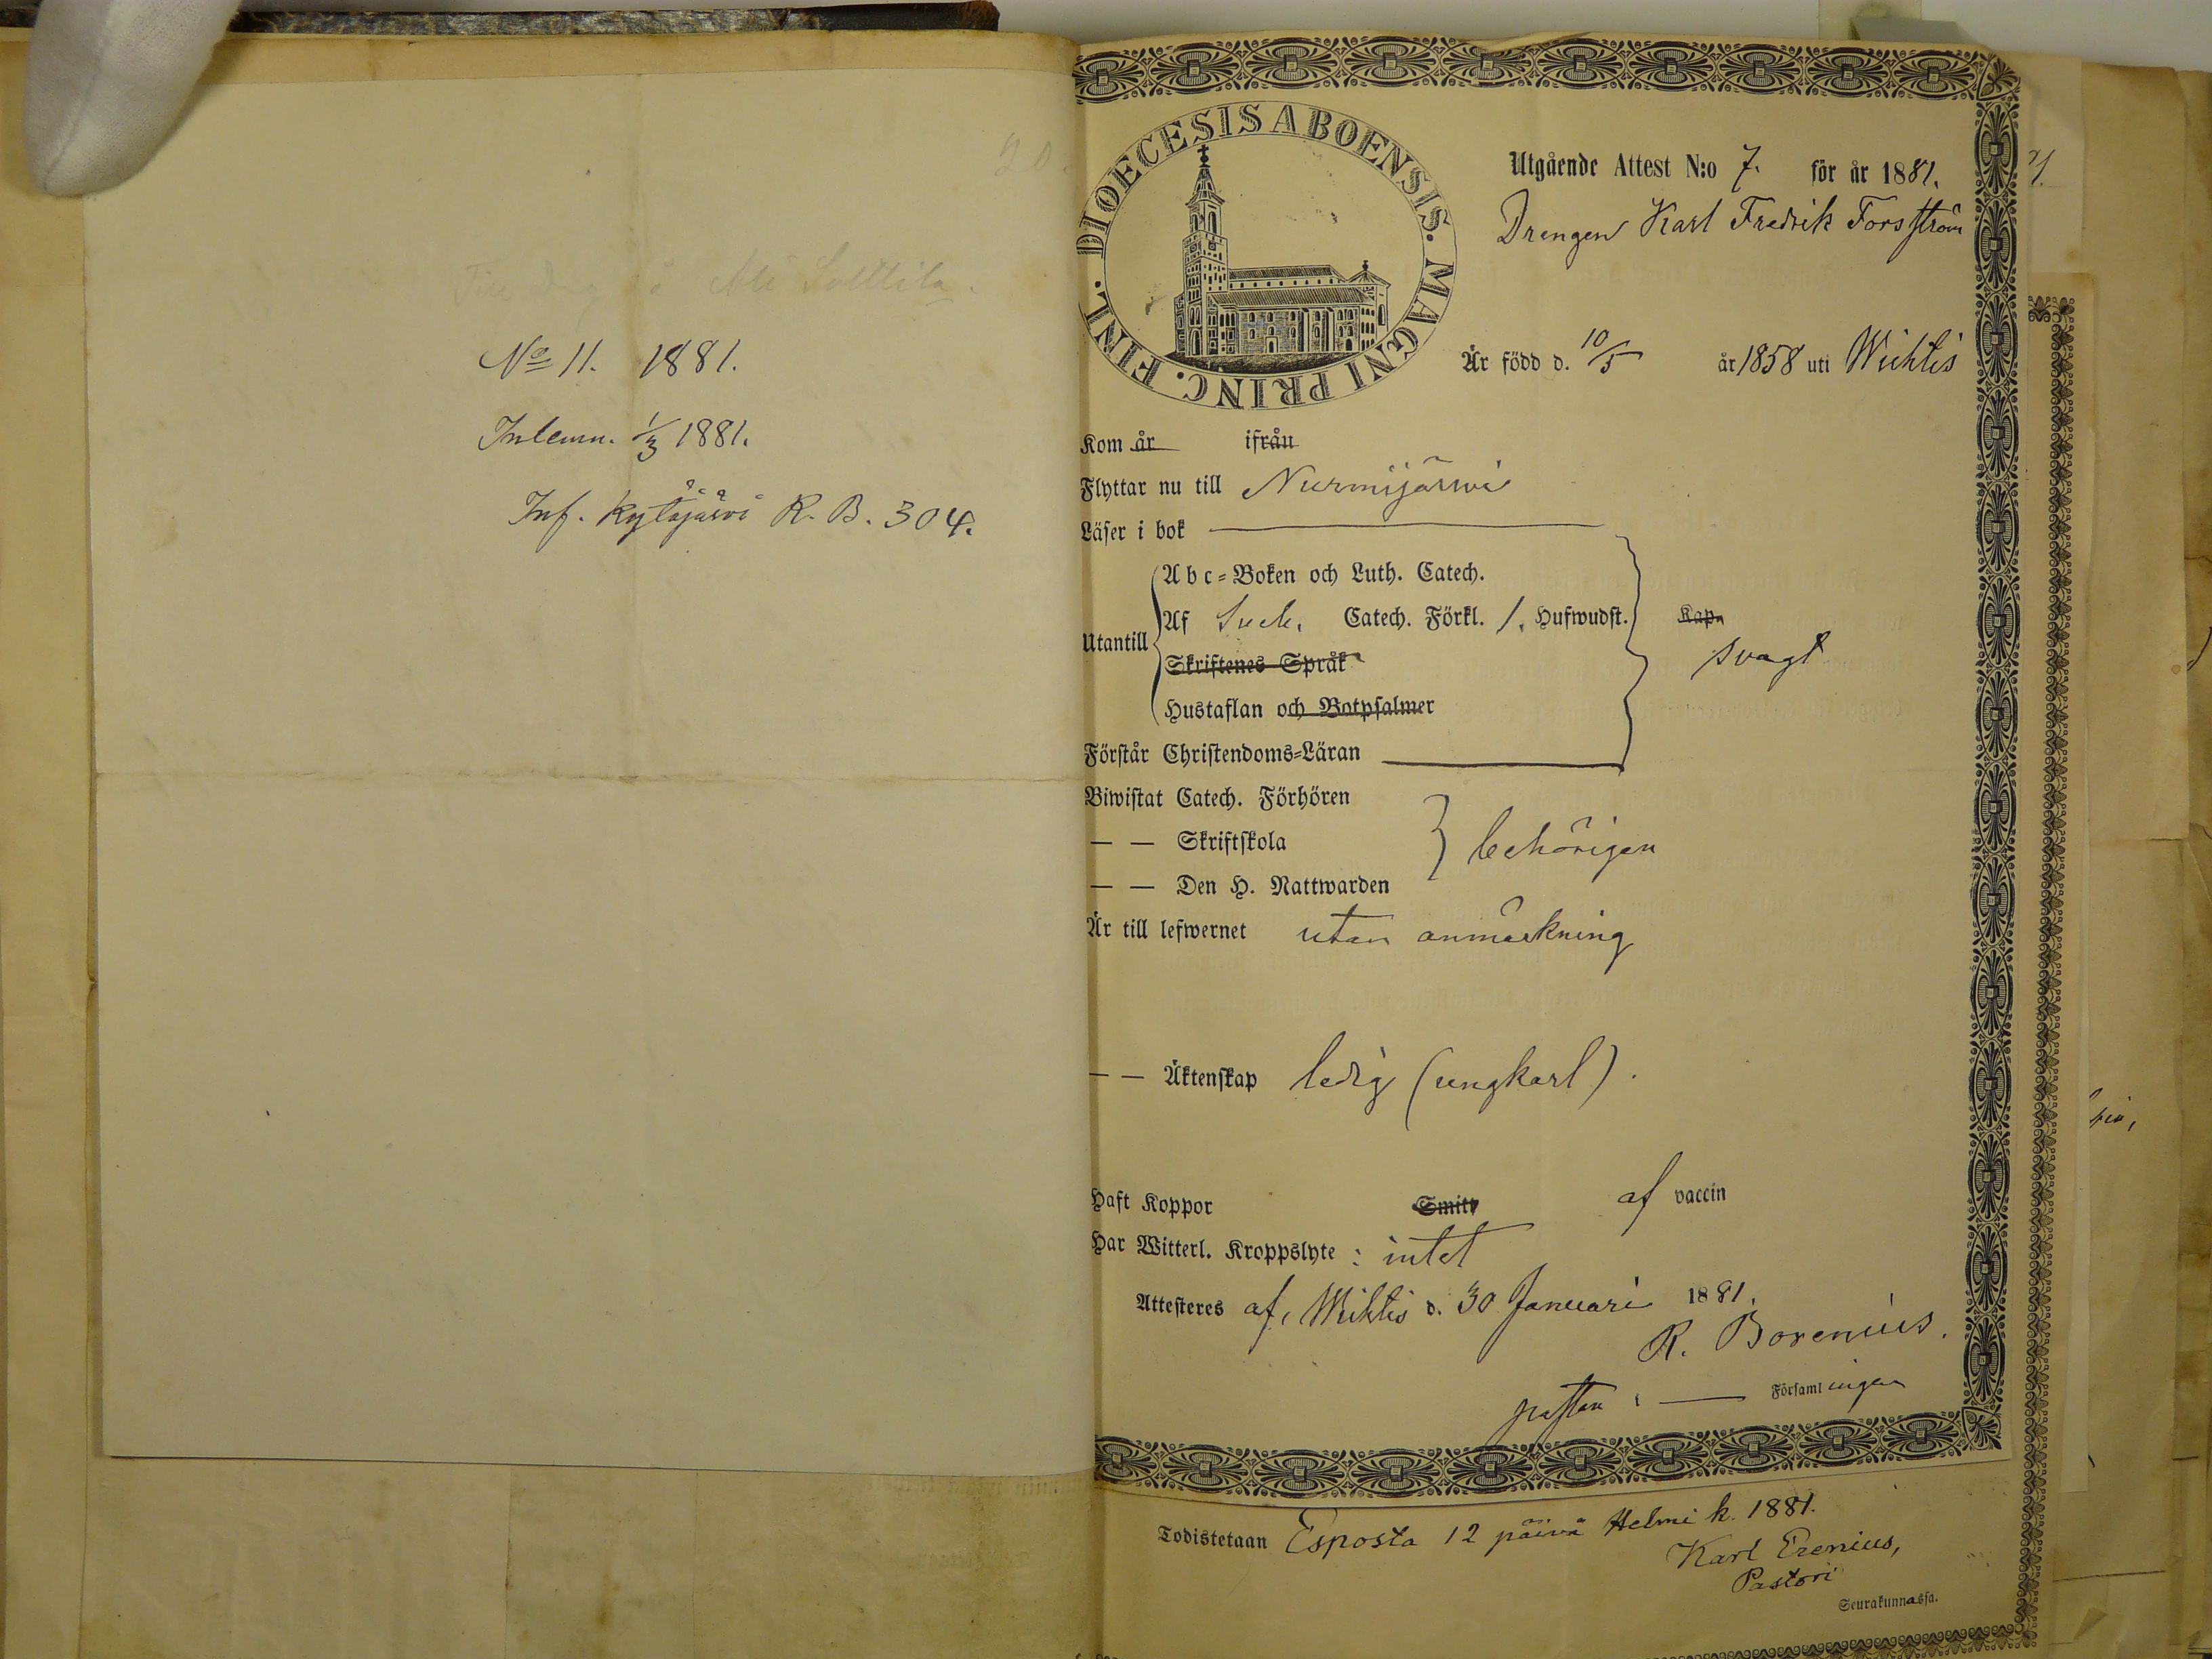 20.
No 11. 1881.
Inlemn. 1/3 1881.
Inf. Kytäjärvi R. B. 304.
DIOECESIS ABOENSIS. MAGNI PRINC. FINL.
Utgående Attest N:o 7. för år 1881.
Drengen Karl Fredrik Forsström
Är född d. 10/5 år 1858 uti Wichtis
Kom år ifrån
Flyttar nu till Nurmijärwi
Läser i bok
Abc-Boken och Luth. Catech.
Af Sveb. Catech. Förkl. /. Hufwudst. Kap.
Utantill
svagt
Skriftenes Språk
Hustaflan och Botpsalmer
Förstår Christendoms-Läran
Biwistat Catech. Förhören
— — Skriftskola behörigen
— — Den H. Nattwarden
Är till lefwernet utan anmärkning
— — Äktenskap ledig (ungkarl).
Haft Koppor Smitt af vaccin
Har Witterl. Kroppslyte : intet
Attesteres af, Wihtis d. 30 Januari 1881.
R. Borenius.
Församlingen
Todistetaan Esposta 12 päivä Helmi k. 1881.
Karl Erenius,
Pastori
Seurakunnassa.